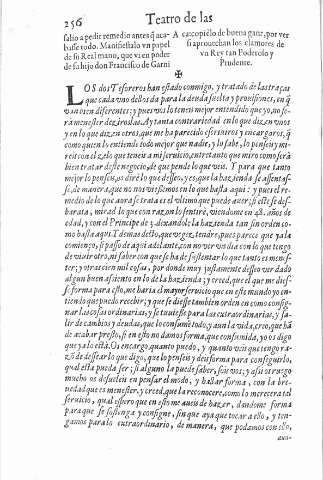 256 Teatro de las
salio a pedir remedio antes q̃ aca-
basse todo. Manifiestalo vn papel
de su Real mano, que vi en poder
de su hijo don Francisco de Garni
A ca copiélo de buena gana, por ver
si aprouechan los clamores de
vn Rey tan Poderoso y
Prudente.
✠
LOS dos Tesoreros han estado conmigo, y tratado de las traças
que cada vno dellos da para la deuda suelta y prouisiones, en q̃
van bien diferentes; y pues vos lo teneis mejor entendido que yo, no se-
rà menester deziroslas. Ay tanta contrariedad en lo que dizen vnos
y en lo que dizen otros, que me ha parecido escriuiros y encargaros, q̃
como quien lo entiende todo mejor que nadie, y lo sabe, lo penseis y mi-
reis con el zelo que teneis a mi seruicio, entretanto que miro como serà
bien tratar deste negocio, de que pende lo que veis. Y para que tanto
mejor lo penseis, os dirè lo que desseo, y es, que la hazienda se assentas-
se, de manera, que no nos viessemos en lo que hasta aqui: y pues el re-
medio de lo que aora se trata es el vltimo que puede auer; si este se des-
barata, mirad lo que con razon lo sentirè, viendome en 48. años de
edad, y con el Principe de 3. dexandole la hazienda tan sin orden co-
mo hasta aqui. Y demas desto, que vejez tendre, pues parece que ya la
comienço, si passo de aqui adelante, con no ver vn dia con lo que tengo
de viuir otro, ni saber con que se ha de sustentar lo que tanto es menes-
ter; y otras cien mil cosas, por donde muy justamente desseo ver dado
algun buen assiento en lo de la hazienda; y creed, que el que me dies-
se forma para esto, me haria el mayor seruicio que en este mundo yo en-
tiendo que puedo recebir; y que se diesse tambien orden en como consig-
nar las cosas ordinarias, y se tuuiesse para las extraordinarias, y sa-
lir de cambios y deudas, que lo consume todo, y aun la vida, creo, que ha
de acabar presto, si en esto no damos forma, que consumida, yo os digo
que ya lo està. Os encargo quanto puedo, y quanto veis que tengo ra-
zõ de dessearlo que digo, que lo penseis y deis forma para conseguirlo,
qual esta pueda ser; si alguno la puede saber, sois vos; y assi os ruego
mucho os desueleis en pensar el modo, y hallar forma, con la bre-
uedad que es menester, y creed, que la reconocere, como lo merecera tal
seruicio, qual espero que en esto me aueis de hazer, dandome forma
para que se sostenga y consigne, sin que aya que tocar a esto, y ten-
gamos para lo extraordinario, de manera, que podamos con esto,
aun-